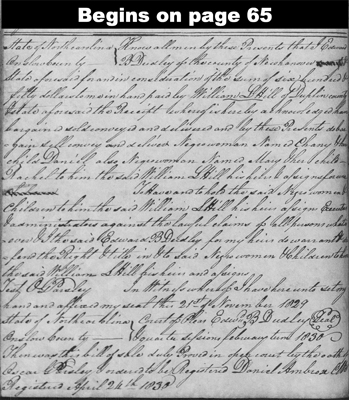 Begins on page 65
State of North Carolina } Know all men by these Presents that I Edward
Onslow County } B Dudley of the County of New hanover
State aforesaid for and in consideration of the sum of six hundred &
fifty dollars to me in hand paid by William L Hill of Duplin County
State aforesaid the Receipt whereof is hereby acknowledged have
bargained sold conveyed and delivered and by these Presents do bar
gain sell convey and deliver Negro woman Named Chany & her
child Daniel also Negro woman Named Mary & her child
Rachel to him the said William L Hill his heirs & assigns forever
To have and to hold the said Negro women &
Children to him the said William L Hill his heirs assigns Executors
& administrators against the lawful claims of all persons whatso
ever I the said Edward B Dudley for my heirs do warrant &
defend the Right & title to the said Negro women & Children to him
the said William L Hill his heirs and assigns
Test O. Presley In Witness whereof I have hereunto set my
hand and affixed my seal this 21st November 1829
State of North Carolina } Edwd B. Dudley Seal
Onslow County } Quarter sessions February term 1830
Then was this bill of sale duly Proved in open court by the oath of
Oscar Presley & ordered to be Registered Daniel Ambrose
Registered April 24th 1830